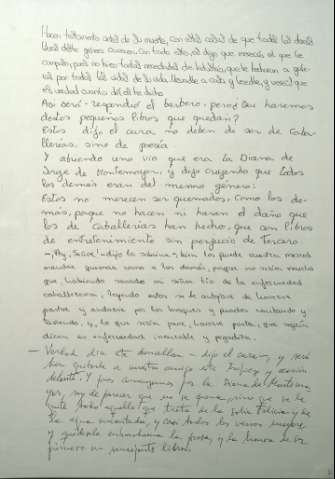 Hacen testamento antes de su muerte, con otras cosas de que todos los demás
libros deste género carecen. Con todo esto, os digo que merecía el que le
compuso, pues no hizo tantas necedades de industria, que le echaran a gale-
ras por todos los días de su vida. Llevadle a casa y leedle, y veréis que
es verdad cuanto dél os he dicho.
Así será - respondió el barbero - pero ¿qué haremos
destos pequeños libros que quedan?
Estos - dijo el cura no deben de ser de caba-
llerías, sino de poesía.
Y abriendo uno vio que era la Diana de
Jorge de Montemayor, y dijo creyendo que todos
los demás eran del mesmo género:
Estos no merecen ser quemados, como los de-
más, porque no hacen ni harán el daño que
los de caballerías han hecho, que son libros
de entretenimiento sin perjuicio de tercero
- ¡Ay, señor! - dijo la sobrina - bien los puede vuestra merced
mandar quemar como a los demás, porque no sería mucho
que, habiendo sanado mi señor tío de la enfermedad
caballeresca, leyendo estos se le antojase de hacerse
pastor y andarse por los bosques y prados cantando y
tañendo, y, lo que sería peor, hacerse poeta, que según
dicen es enfermedad incurable y pegadiza.
- Verdad dice esta doncella - dijo el cura -, y será
bien quitarle a nuestro amigo este tropiezo y ocasión
delante. Y pues comenzamos por la Diana de Montema-
yor, soy de parecer que no se queme, sino que se le
quite todo aquello que trata de la sabia Felicia y de
la agua encantada, y casi todos los versos mayores
y quédesele enhorabuena la prosa, y la honra de ser
primero en semejantes libros.